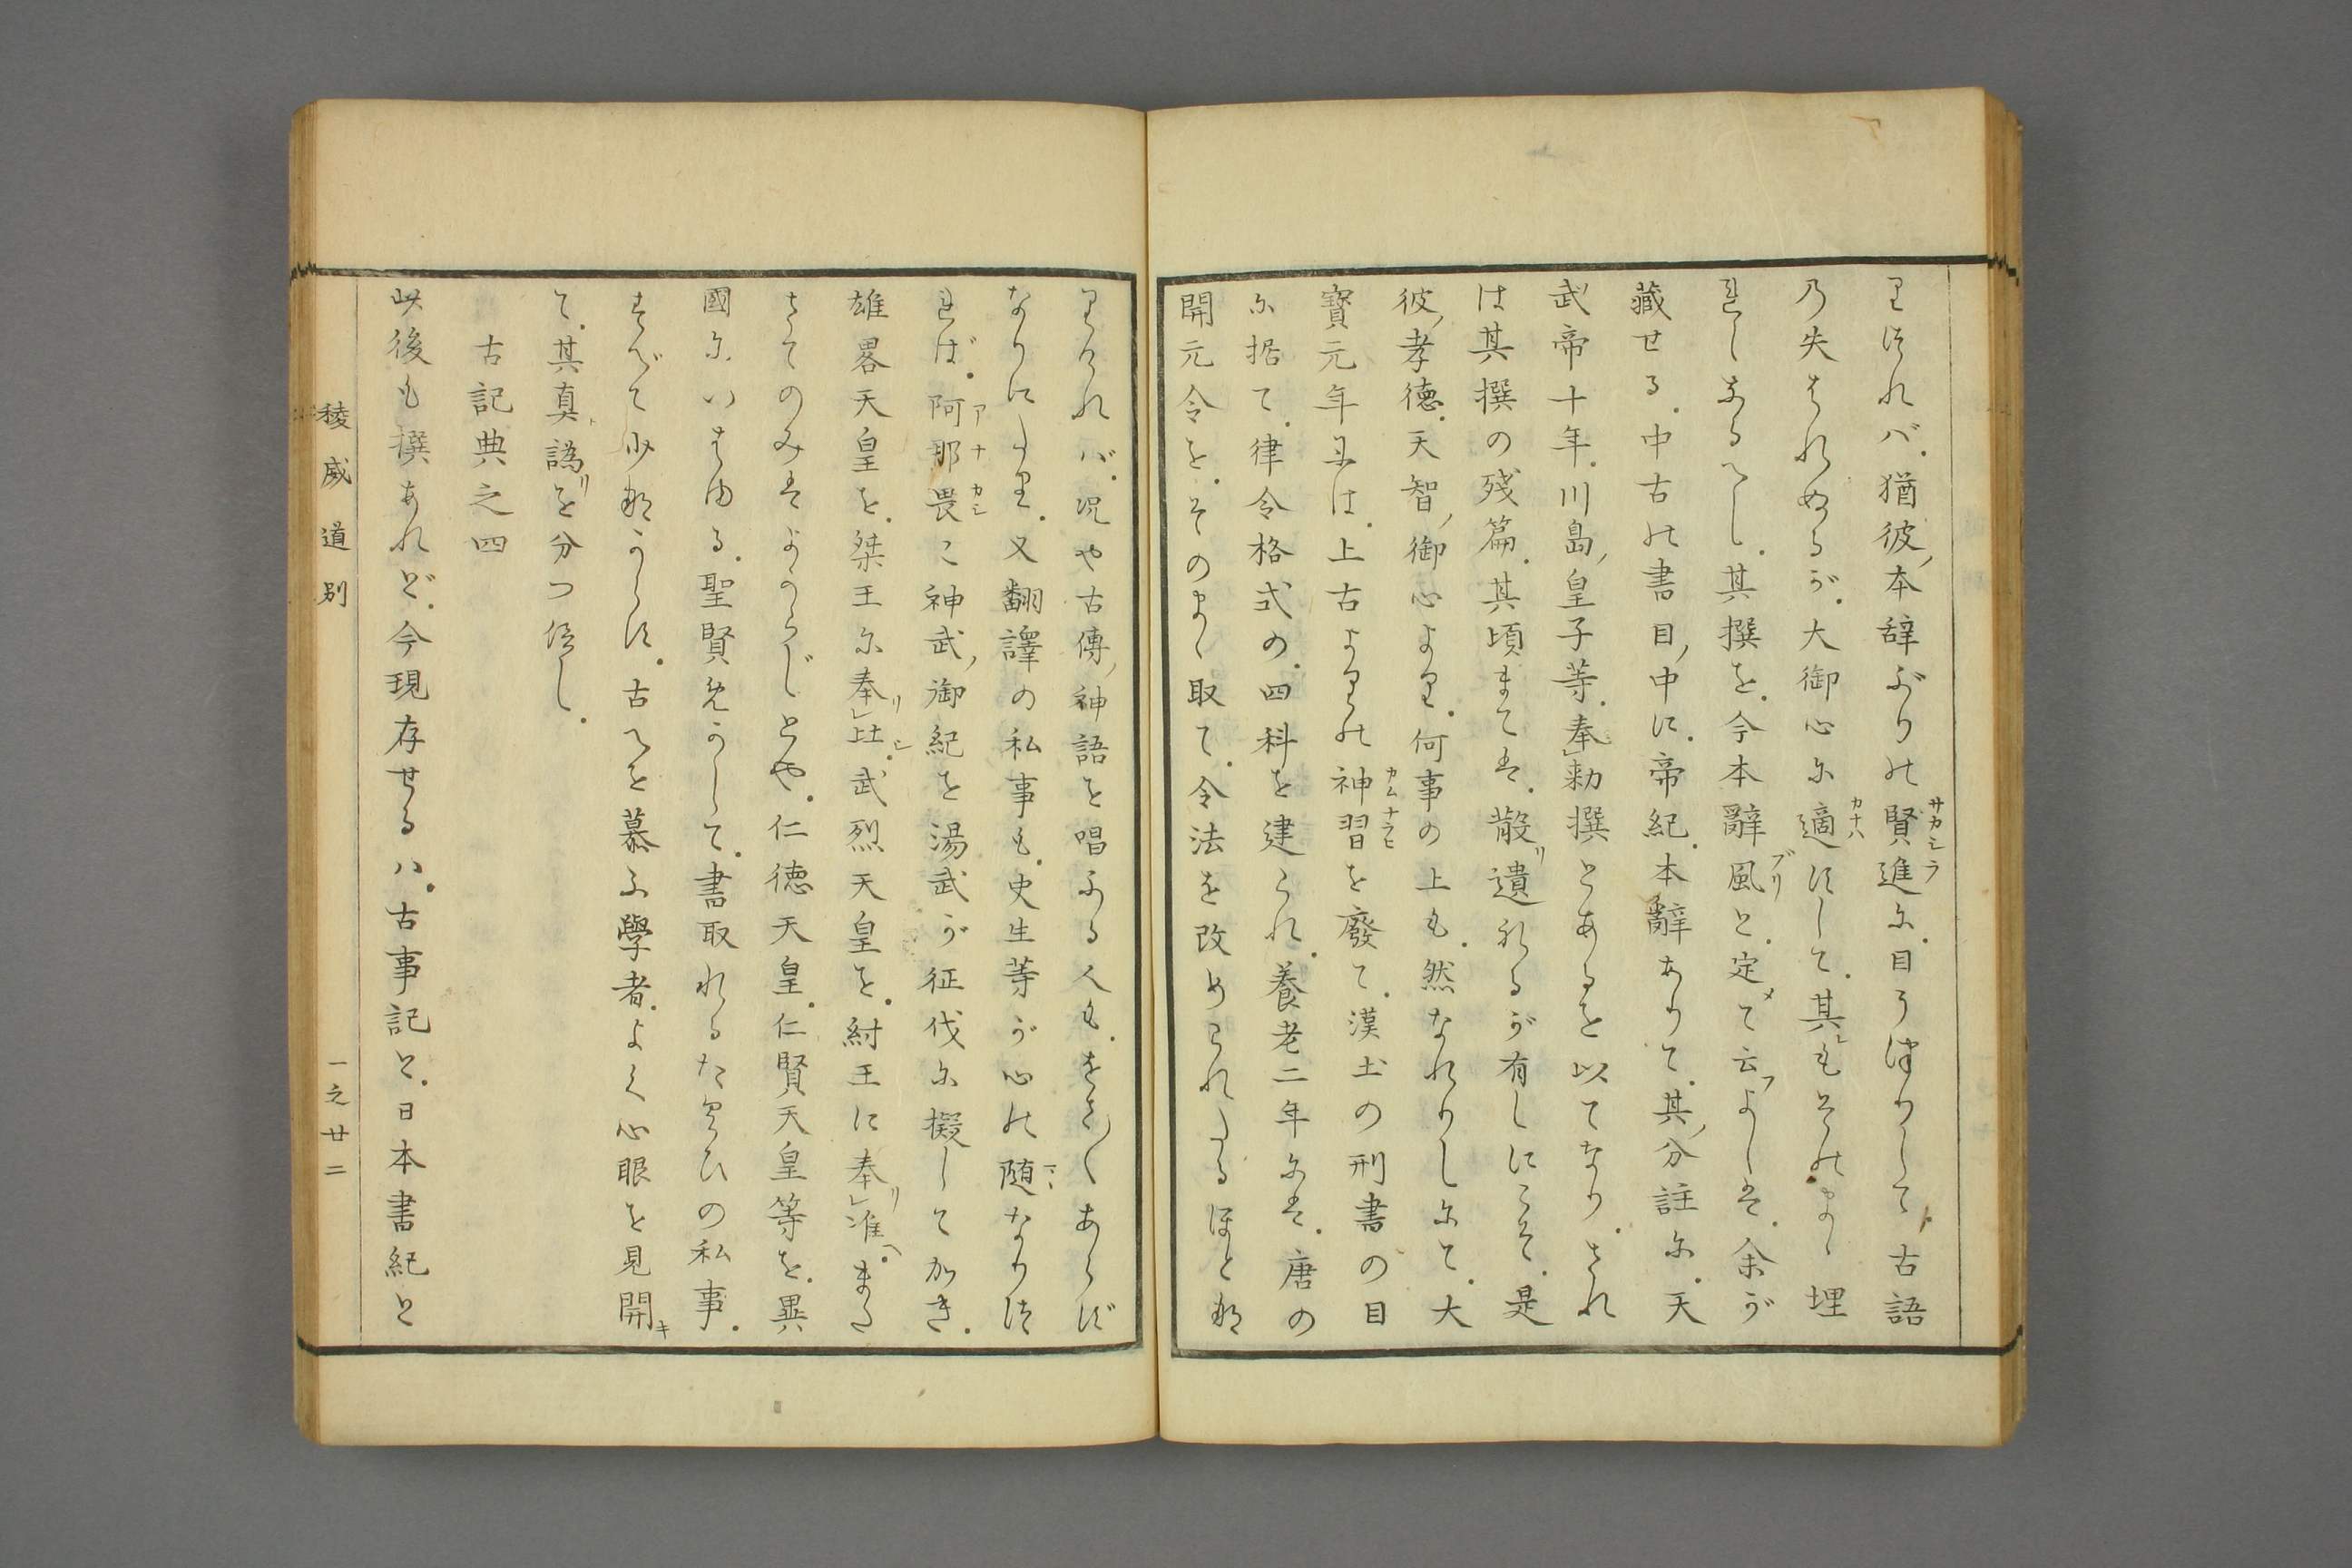 りつれバ。猶彼ノ本辞ぶりの賢進に。目うつりして。古語
の失はれぬるが。大御心に適はずして。其もそのまゝ埋
れしなるべし。其撰を。今本辭風と。定メて云フよしは。余が
藏せる。中古の書目ノ中に。帝紀。本辭ありて。其ノ分註に。天
武帝十年。川島ノ皇子等。奉勅撰とあるを以てなり。され
は其撰の殘篇。其頃までは。散リ遺れるが有しにこそ。是
彼ノ孝徳。天智ノ御心より。何事の上も。然なれりしにて。大
寶元年には。上古よりの神習を廢て。漢土の刑書の目
に据て。律令格式の。四科を建られ。養老二年には。唐の
開元令を。そのまゝ取て。令法を改められたるほどな
りけれバ。况や古傳ノ神語を唱ふる人も。をさ〳〵あらず
なりにたり。又翻譯の私事も。史生等が心の随なりつ
れば。阿那畏こ神武ノ御紀を湯武が征伐に擬してかき。
雄畧天皇を。桀王に奉リ比シ。武烈天皇を。紂王に奉リ准ヘ。また
さてのみはよからじとや。仁徳天皇。仁賢天皇等を。異
國にいはゆる。聖賢めかして。書取れるたぐひの私事。
すべて少なからず。古へを慕ふ學者。よく心眼を見開キ
て。其真ト譌リを分つべし。
古記典之四
此後も撰あれど。今現存せるハ。古事記と。日本書紀と
稜威道別
一之廿二